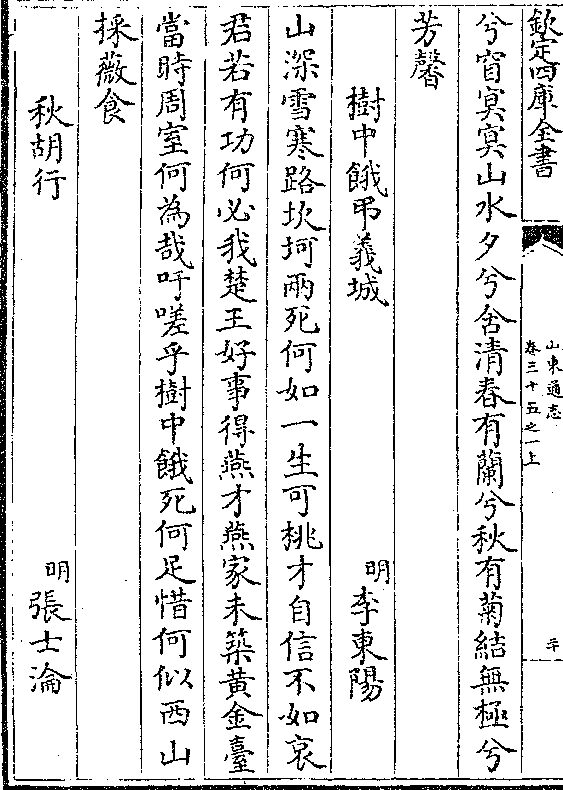 欽定四庫全書
山東通志
卷三十五之一上
二十
兮窅㝠㝠山水夕兮含清春有蘭兮秋有菊結無極兮
芳馨
樹中餓弔義城
明李東陽
山深雪寒路坎坷兩死何如一生可桃才自信不如哀
君若有功何必我楚王好事得燕才燕家未築黄金臺
當時周室何為哉吁嗟乎樹中餓死何足惜何似西山
採薇食
秋胡行
明張士淪